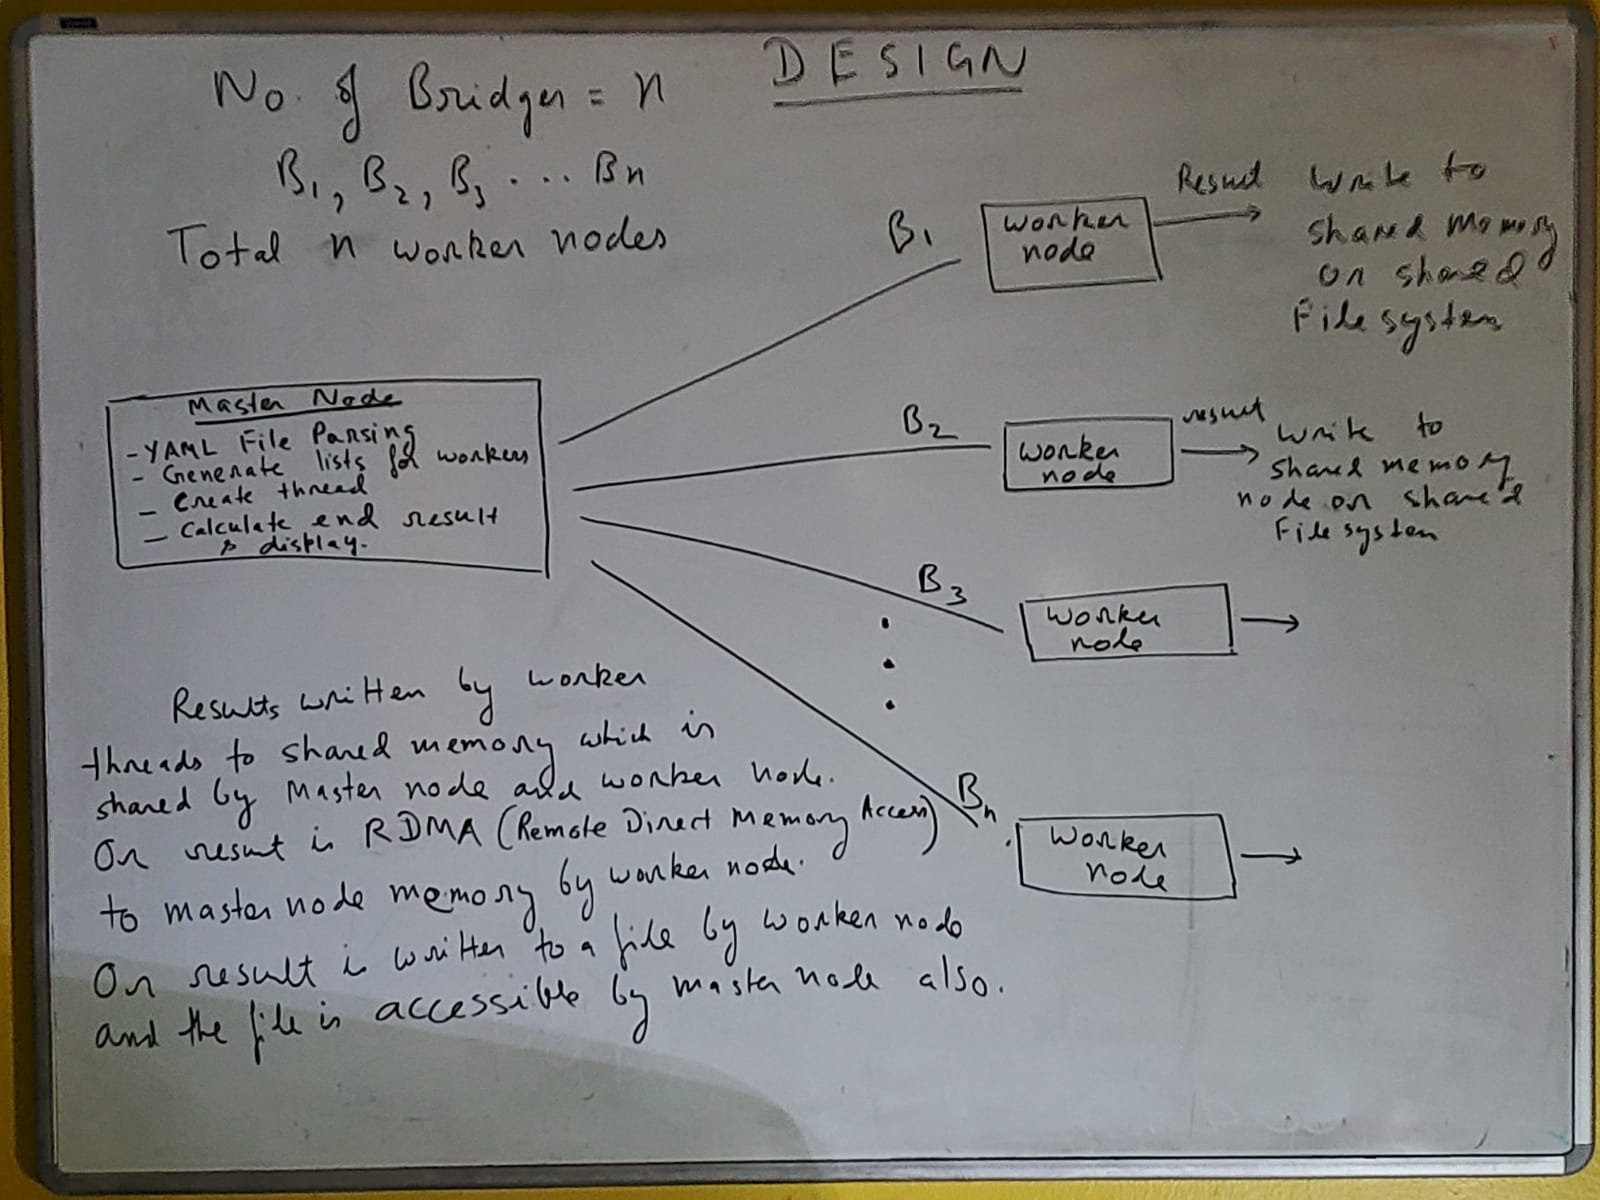 DESIGN
No. of Bridges = n
B1, B2, B3 ... Bn
Total n worker nodes
Master Node
- YAML File Parsing
- Generate lists for workers
- Create thread
- Calculate end result
& display.
B1
worker
node
Result
Write to
shared memory
or shared
File system
B2
worker
node
result
write to
shared memory
node or shared
File system
B3
worker
node
Bn
Worker
node
Results written by worker
threads to shared memory which is
shared by Master node and worker node.
Or result is RDMA (Remote Direct Memory Access)
to master node memory by worker node.
Or result is written to a file by worker node
and the file is accessible by master node also.